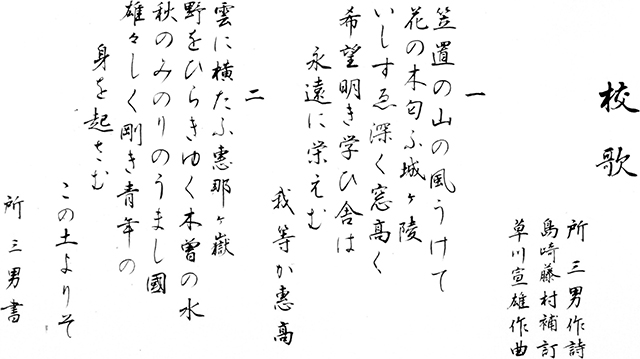 校歌
所三男作詩
島崎藤村補訂
草川宣雄作曲
一
笠置の山の風うけて
花の木匂ふ城ヶ陵
いしすゑ深く窓高く
希望明き学ひ舎は
永遠に栄えむ
我等か恵高
二
雲に横たふ恵那ヶ嶽
野をひらきゆく木曽の水
秋のみのりのうまし國
雄々しく剛き青年の
身を起さむ
この土よりそ
所三男書